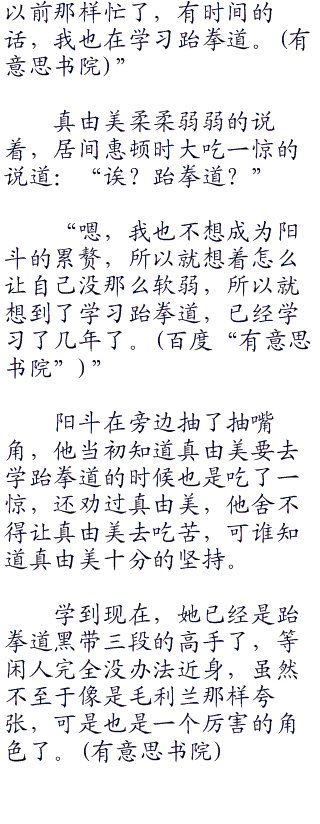 以前那样忙了，有时间的
话，我也在学习跆拳道。(有
意思书院)”
真由美柔柔弱弱的说
着，居间惠顿时大吃一惊的
说道：“诶？跆拳道？”
“嗯，我也不想成为阳
斗的累赘，所以就想着怎么
让自己没那么软弱，所以就
想到了学习跆拳道，已经学
习了几年了。(百度“有意思
书院”)”
阳斗在旁边抽了抽嘴
角，他当初知道真由美要去
学跆拳道的时候也是吃了一
惊，还劝过真由美，他舍不
得让真由美去吃苦，可谁知
道真由美十分的坚持。
学到现在，她已经是跆
拳道黑带三段的高手了，等
闲人完全没办法近身，虽然
不至于像是毛利兰那样夸
张，可是也是一个厉害的角
色了。(有意思书院)